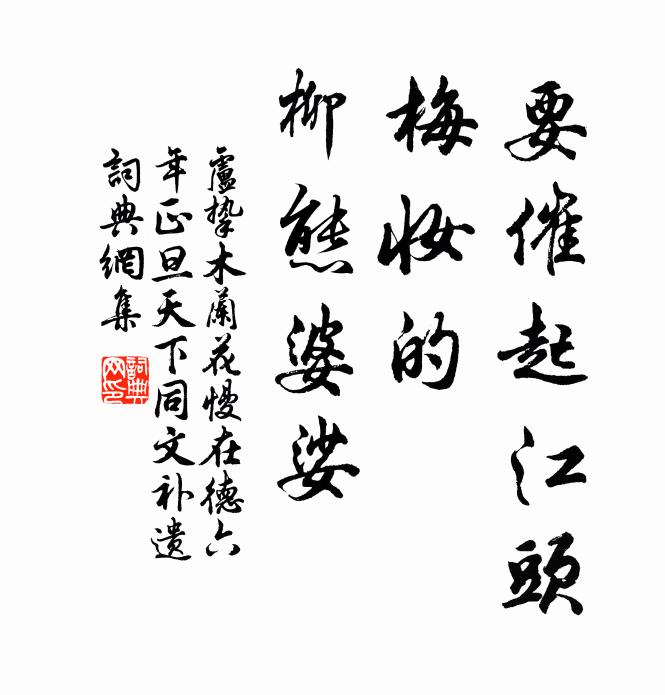 要催起江頭
梅妝的
柳態婆娑
盧摯木蘭花慢在德六
年正旦天下同文补遺
詞典網集
詞典
网印